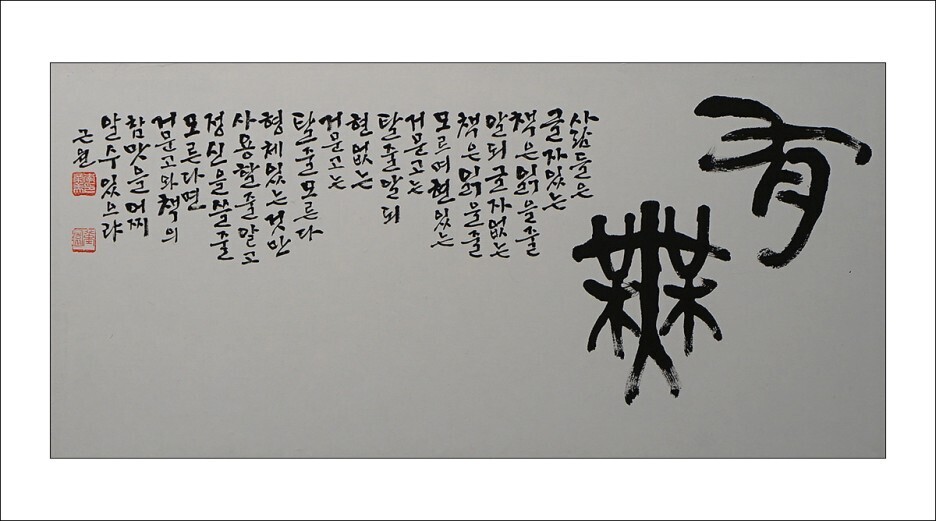 有
無
사람들은
글자있는
책은읽을줄
알되글자없는
책은읽을줄
모르며현있는
거문고는
탈줄알되
현없는
거문고는
탈줄모른다
형체있는것만
사용할줄알고
정신을쓸줄
모른다면
거문고와책의
참맛을어찌
알수있으랴
근원